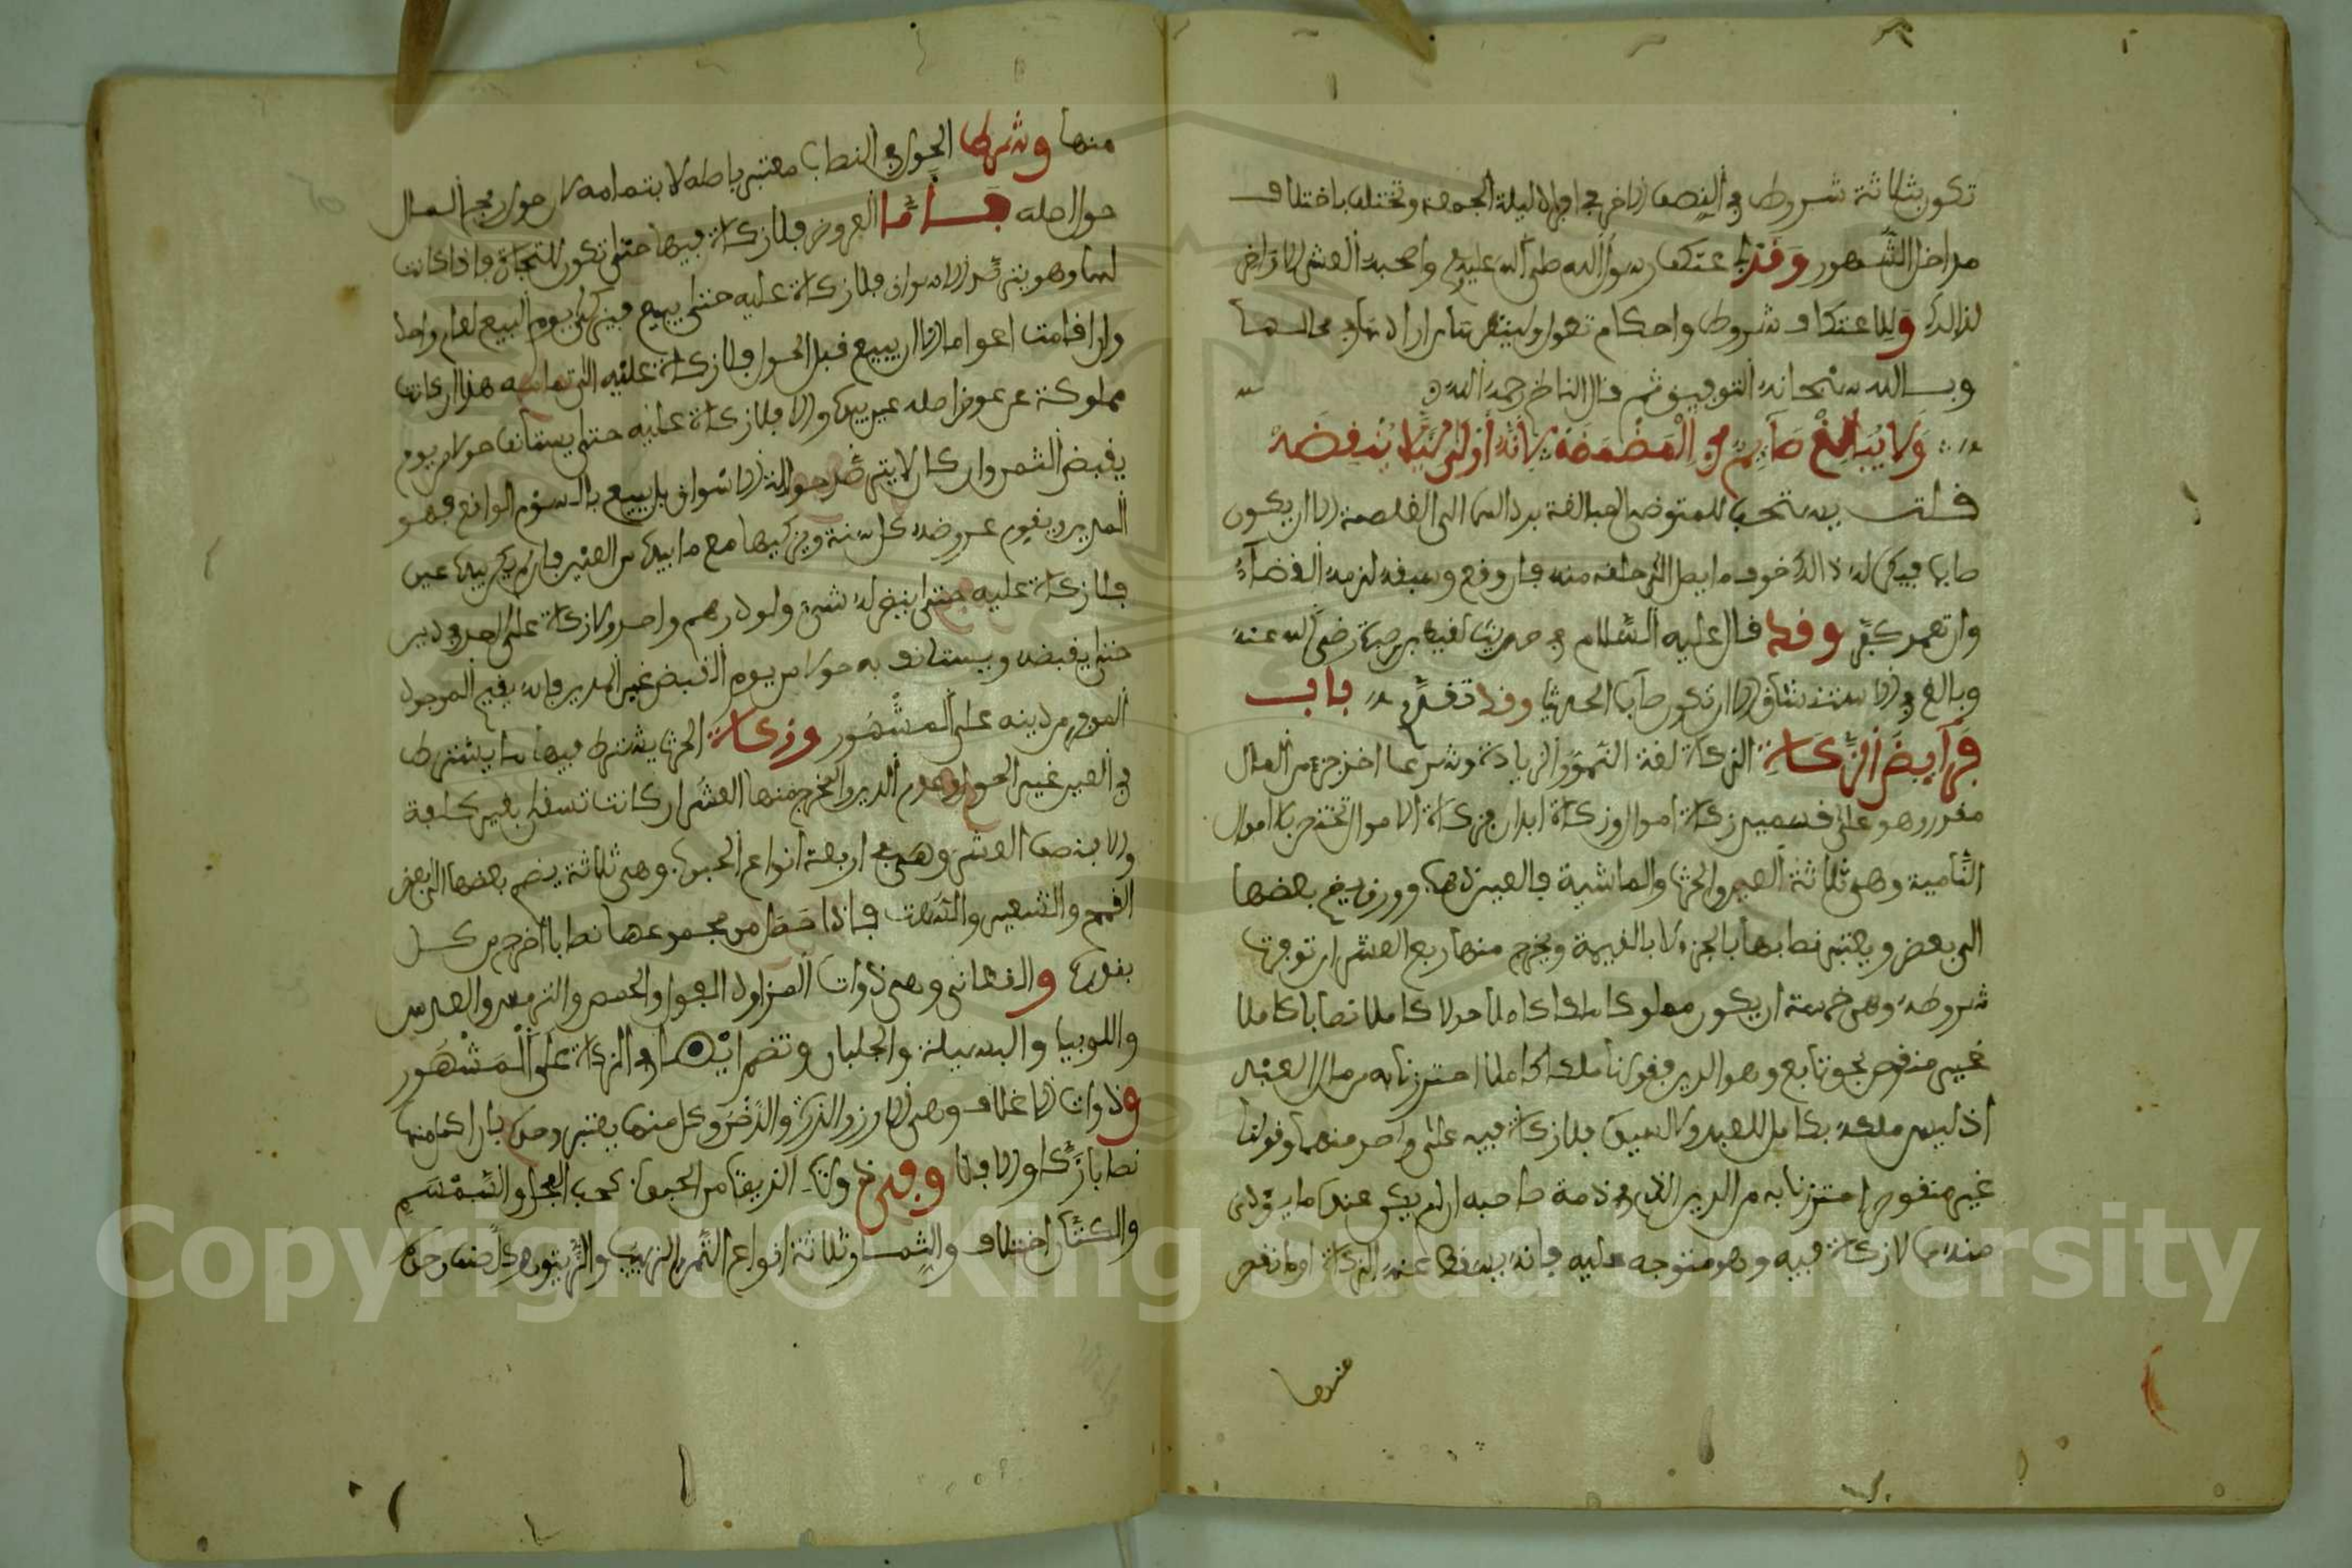 تكون بثلاثة شروط في النصف الاخر في افراد ليلة الجمعة وتختلف باختلاف
مداخل الشهور وقد اعتكف رسول الله صلى الله عليه واصحبه العشر الاواخر
لذالك وللاعتكاف شروط واحكام تطول
وبالله سبحانه التوفيق ثم قال الناظم رحمه الله
وَلَا يُبَالِغْ صَآيِمٌ فِي الْمَضْمَضَهْ لِأَنَّهُ أَوْلَى لِيَلَّا يُنْقِضَهْ
قلت يستحب للمتوضي المبالغة برد الماء الى الغلصمة الا ان يكون
صايما فيكره له ذالك خوف ما يصل الى حلقه منه فان وقع وسبقه لزمه القضاء
وان تعمد كفر وقد قال عليه السلام في حديث لقيط بن صبرة رضي الله عنه
وبالغ في الاستنشاق الا ان تكون صايما الحديث وقد تقدم باب
فَرَآيِضَ الزَّكَاةِ الزكاة لغة النمو والزيادة وشرعا اخراج جزء من المال
مقدر وهو على قسمين زكاة اموال وزكاة ابدان فزكاة الاموال تختص بالاموال
النامية وهي ثلاثة العين والحرث والماشية فالعين ذهب وورق يضم بعضها
الى بعض ويعتبر نصابها بالجزء لا بالقيمة ويخرج منها ربع العشر ان توفرت
شروطه وهي خمسة ان يكون مملوكا ملكا كاملا حولا كاملا نصابا كاملا
غير منقوص بحق تابع وهو الدين فقولنا ملكا كاملا احترزنا به من مال العبد
اذ ليس ملكه بكامل للعبد ولا السيد فلا زكاة فيه على واحد منهما وقولنا
غير منقوص احترزنا به من الدين الذي في ذمة صاحبه ان لم يكن عنده ما يؤدى
منه مما لا زكاة فيه وهو متوجه عليه فانه يسقط عنه الزكاة او ما نقص
منها
منها وشرط الحول في النصاب معتبر باصله لا بتمامه لان حول ربح المال
حول اصله فأما العروض فلا زكاة فيها حتى تكون للتجارة فاذا كانت
لها وهو يترصد الاسواق فلا زكاة عليه حتى يبيع فيزكي يوم البيع لعام واحد
وان اقامت اعواما الا ان يبيع قبل الحول فلا زكاة عليه الى تمامه هذا ان كانت
مملوكة عن عوض اصله عين بيده والا فلا زكاة عليه حتى يستانف حولا من يوم
يقبض الثمن وان كان لا يترصد حوالة الاسواق بل يبيع بالسوم الواقع فهو
المدير ويقوم عروضه كل سنة ويزكيها مع ما بيده من العين فان لم يكن بيده عين
فلا زكاة عليه حتى ينض له شيء ولو درهم واحد ولا زكاة على المرء في دين
حتى يقبضه ويستانف به حولا من يوم القبض غير المدير فانه يقيم الموجود
المرجو من دينه على المشهور وزكاة الحرث يشترط فيها ما يشترط
في العين غير الحول وعدم الدين والمخرج منها العشر ان كانت تسقى بغير كلفة
والا بنصف العشر وهي في اربعة انواع الحبوب وهي ثلاثة يضم بعضها الى بعض
القمح والشعير والسلت فاذا حصل من مجموعها نصابا اخرج من كل
بقدره والقطاني وهي ذوات المزاود الفول والحمص والترمس والعدس
واللوبيا والبسيلة والجلبان وتضم ايضا في الزكاة على المشهور
وذوات الاغلاف وهي الارز والذرة والدخن وكل منها يعتبر وحده فان اكمل منها
نصابا زكا والا فلا وفي ذوات الزيت من الحبوب كحب الفجل والسمسم
والكتان اختلاف والثمار وثلاثة انواع التمر والزبيب والزيتون كل صنف وحده